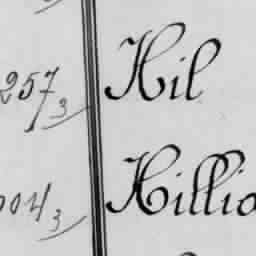 257 3 Hil
004 3 Hillio